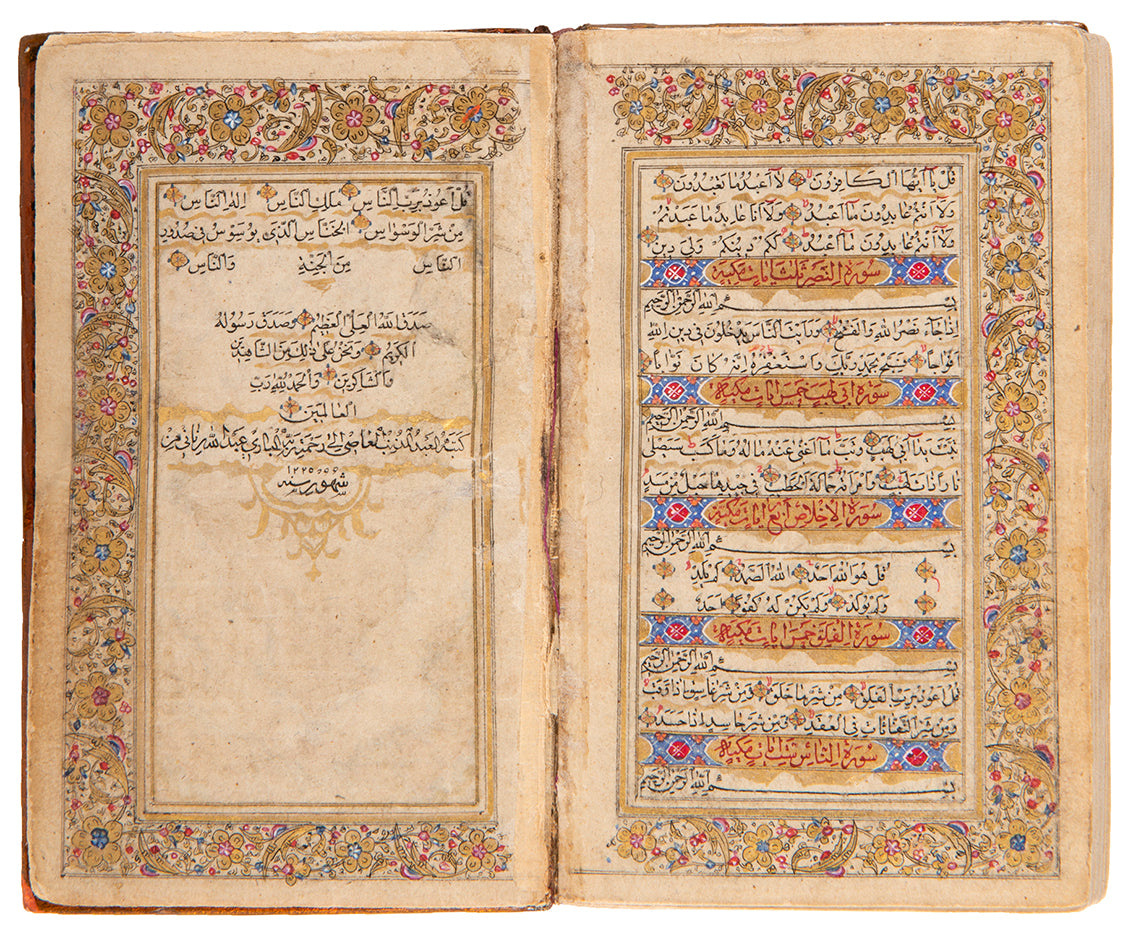 قل يا أيها الكافرون لا أعبد ما تعبدون
ولا أنتم عابدون ما أعبد ولا أنا عابد ما عبدتم
ولا أنتم عابدون ما أعبد لكم دينكم ولي دين
سورة النصر ثلث ايات مكية
بسم الله الرحمن الرحيم
إذا جاء نصر الله والفتح ورأيت الناس يدخلون في دين الله
أفواجا فسبح بحمد ربك واستغفره إنه كان توابا
سورة ابي لهب خمس ايات مكية
بسم الله الرحمن الرحيم
تبت يدا أبي لهب وتب ما أغنى عنه ماله وما كسب سيصلى
نارا ذات لهب وامرأته حمالة الحطب في جيدها حبل من مسد
سورة الاخلاص اربع ايات مكية
بسم الله الرحمن الرحيم
قل هو الله أحد الله الصمد لم يلد
ولم يولد ولم يكن له كفوا أحد
سورة الفلق خمس ايات مكية
بسم الله الرحمن الرحيم
قل أعوذ برب الفلق من شر ما خلق ومن شر غاسق إذا وقب
ومن شر النفاثات في العقد ومن شر حاسد إذا حسد
سورة الناس ست ايات مكية
بسم الله الرحمن الرحيم
قل أعوذ برب الناس ملك الناس إله الناس
من شر الوسواس الخناس الذي يوسوس في صدور
الناس من الجنة والناس
صدق الله العلي العظيم وصدق رسوله
الكريم ونحن على ذلك من الشاهدين
والشاكرين والحمد لله رب
العالمين
كتبه العبد المذنب العاصي الى رحمة ربه الباري عبد الله
شهور سنه ١٢٢٥